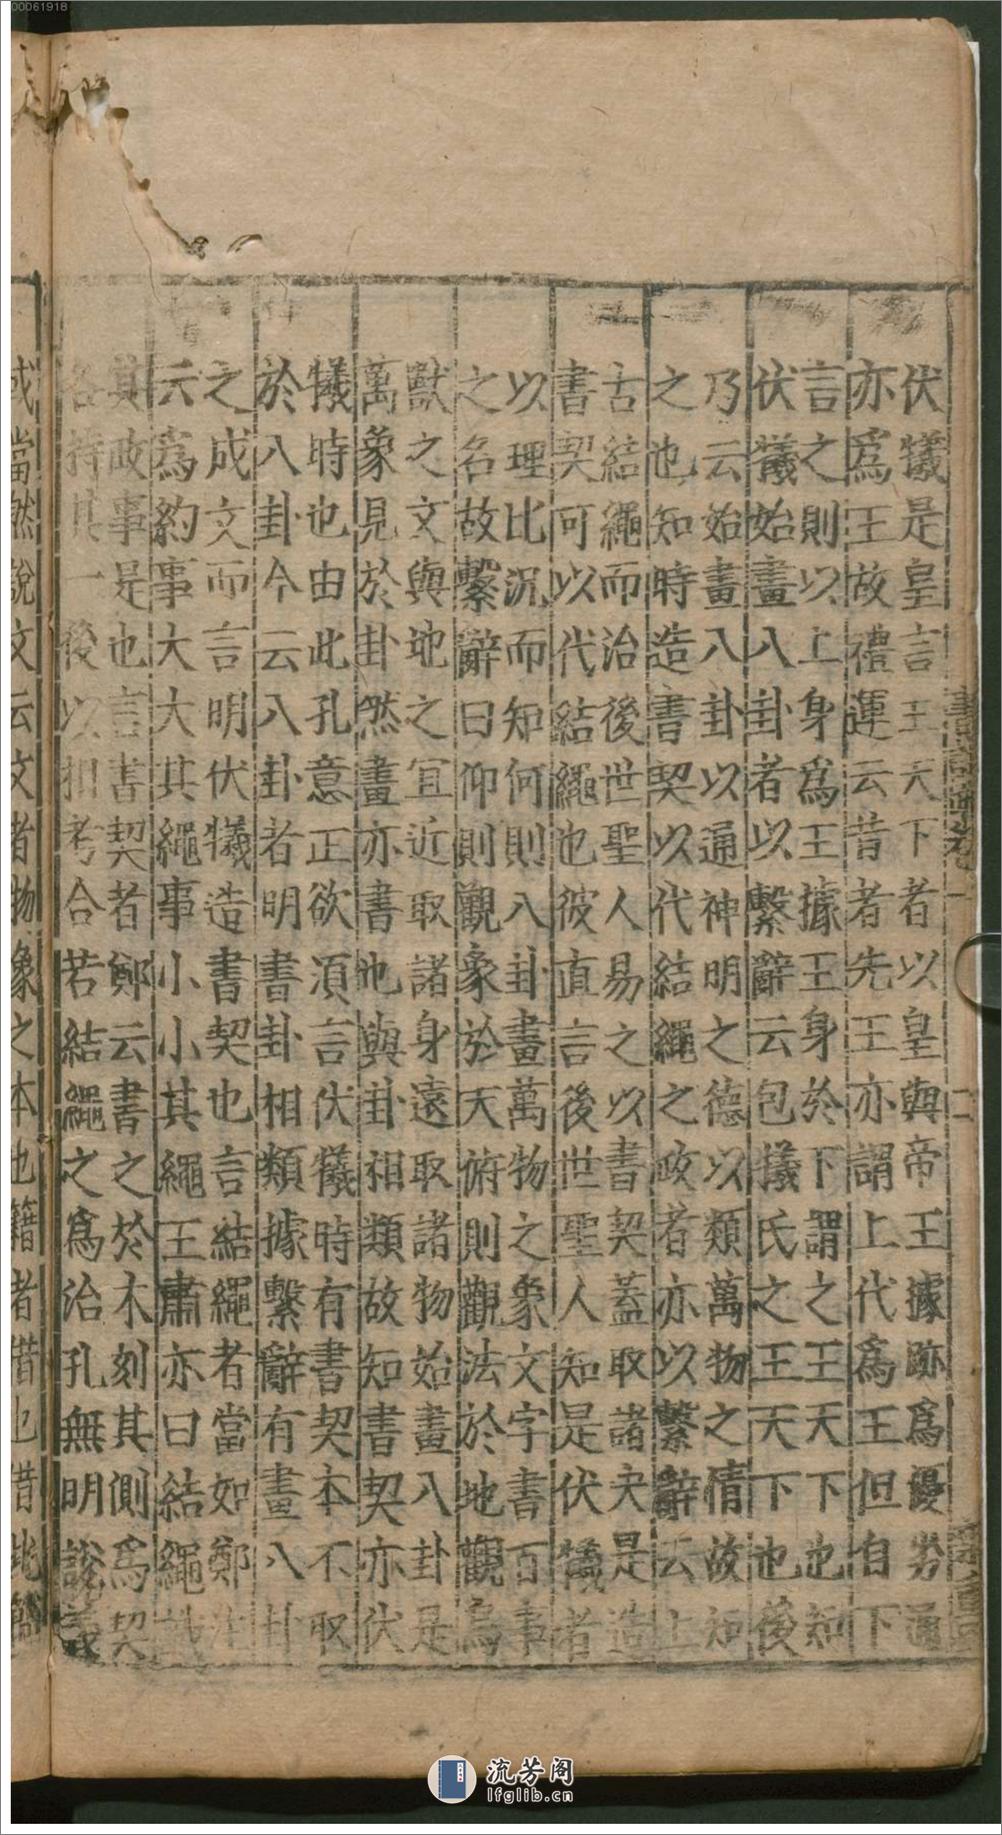 00061918
伏犧是皇言王天下者以皇與帝王據跡爲優劣通
亦爲王故禮運云昔者先王亦謂上代爲王但自下
言之則以上身爲王據王身於下謂之王天下也知
伏犧始畫八卦者以繫辭云包犧氏之王天下也後
乃云始畫八卦以通神明之德以類萬物之情故知
之也知時造書契以代結繩之政者亦以繫辭云上
古結繩而治後世聖人易之以書契蓋取諸夬是造
書契可以代結繩也彼直言後世聖人知是伏犧者
以理比況而知何則八卦畫萬物之象文字書百事
之名故繫辭曰仰則觀象於天俯則觀法於地觀鳥
獸之文與地之宜近取諸身遠取諸物始畫八卦是
萬象見於卦然畫亦書也與卦相類故知書契亦伏
犧時也由此孔意正欲須言伏犧時有書契本不取
於八卦今云八卦者明書卦相類據繫辭有畫八卦
之成文而言明伏犧造書契也言結繩者當如鄭注
云爲約事大大其繩事小小其繩王肅亦曰結繩識
其政事是也言書契者鄭云書之於木刻其側爲契
各持其一後以相考合若結繩之爲治孔無明說義
或當然說文云文者物象之本也籍者借也借此簡
流芳阁
lfglib.cn